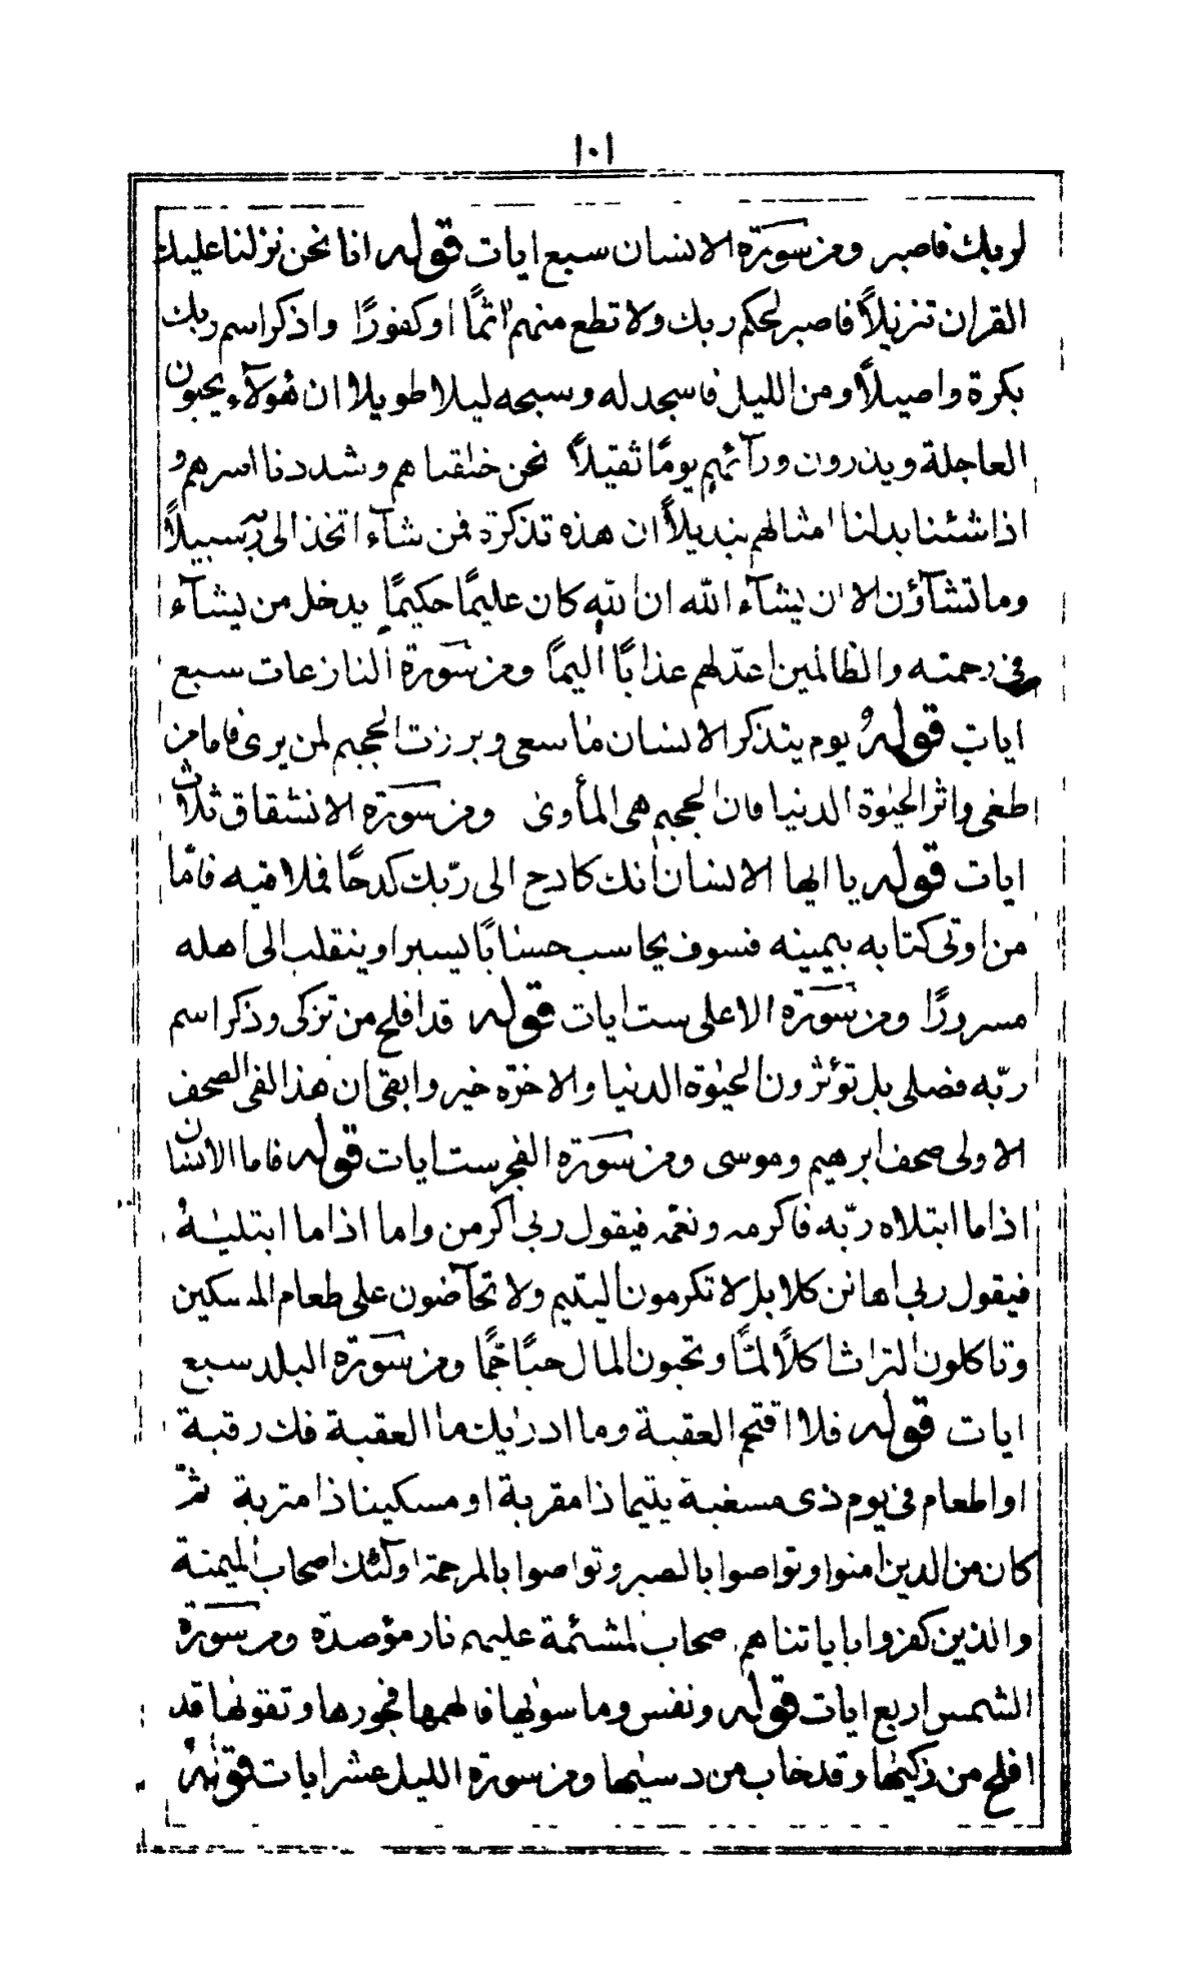 ١٠١
لربك فاصبر ومن سورة الانسان سبع ايات قوله انا نحن نزلنا عليك
القران تنزيلاً فاصبر لحكم ربك ولا تطع منهم اثمًا او كفورًا واذكر اسم ربك
بكرة واصيلاً ومن الليل فاسجد له وسبحه ليلا طويلا ان هؤلآء يحبون
العاجلة ويذرون ورآئهم يومًا ثقيلاً نحن خلقناهم وشددنا اسرهم و
اذا شئنا بدلنا امثالهم تبديلاً ان هذه تذكرة فمن شآء اتخذ الى ربه سبيلاً
وما تشآؤن الا ان يشآء الله ان الله كان عليمًا حكيمًا يدخل من يشآء
فى رحمته والظالمين اعدّ لهم عذابًا اليمًا ومن سورة النازعات سبع
ايات قولهُ يوم يتذكر الانسان ما سعى وبرزت الجحيم لمن يرى فاما من
طغى واثر الحيٰوة الدنيا فان الجحيم هى المأوى ومن سورة الانشقاق ثلاث
ايات قوله يا ايها الانسان انك كادح الى ربّك كدحًا فملاقيه فامّا
من اوتى كتابه بيمينه فسوف يحاسب حسابًا يسيرا وينقلب الى اهله
مسرورًا ومن سورة الاعلى ست ايات قوله قد افلح من تزكى وذكر اسم
ربّه فصلى بل تؤثرون الحيٰوة الدنيا والاخرة خير وابقى ان هذا لفى الصحف
الاولى صحف ابرهيم وموسى ومن سورة الفجر ست ايات قوله فاما الانسان
اذا ما ابتلاه ربّه فاكرمه ونعّمه فيقول ربى اكرمن واما اذا ما ابتليٰهُ
فيقول ربى اهانن كلا بل لا تكرمون اليتيم ولا تحآضون على طعام المسكين
وتاكلون التراث اكلاً لمًّا وتحبون المال حبًّا جمًّا ومن سورة البلد سبع
ايات قوله فلا اقتحم العقبة وما ادريٰك ما العقبة فك رقبة
او اطعام فى يوم ذى مسغبة يتيما ذا مقربة او مسكينا ذا متربة ثمّ
كان من الذين امنوا وتواصوا بالصبر وتواصوا بالمرحمة اولٓئك اصحاب الميمنة
والذين كفروا باياتنا هم اصحاب المشئمة عليهم نار مؤصدة ومن سورة
الشمس اربع ايات قوله ونفس وما سوٰيها فالهمها فجورها وتقوٰيها قد
افلح من زكيٰها وقد خاب من دسيٰها ومن سورة الليل عشر ايات قولهُ